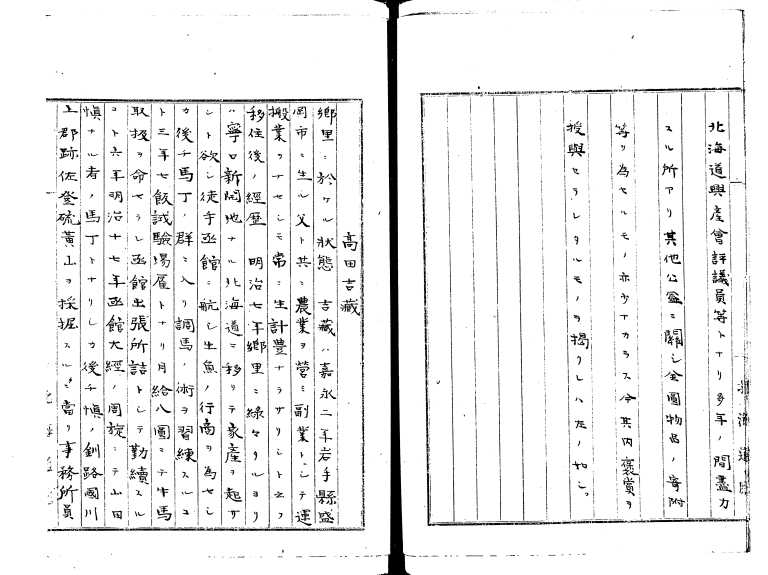 北海道興產會評議員等トナリ多年ノ間盡力
スル所アリ其他公益ニ關シ金圓物品ノ寄附
等ヲ為セルモノ亦少ナカラス今其内褒賞ヲ
授與セラレタルモノヲ揭クレハ左ノ如シ。
高田吉藏
鄕里ニ於ケル狀態 吉藏ハ嘉永二年岩手縣盛
岡市ニ生ル父ト共ニ農業ヲ營ミ副業トシテ運
搬業ヲナセシモ常ニ生計豊ナラサリシト云フ
移住後ノ經歴 明治七年鄕里ニ綠々タルヨリ
ハ寧ロ新開地ナル北海道ニ移リテ家產ヲ起サ
ント欲シ徒手函館ニ航シ生魚ノ行商ヲ為セシ
カ後チ馬丁ノ群ニ入リ調馬ノ術ヲ習練スルコ
ト三年七飯試驗場雇トナリ月給八圓ニテ牛馬
取扱ヲ命セラレ函館出張所詰トシテ勤續スル
コト六年明治十七年函館大經ノ周旋ニテ山田
愼ナル者ノ馬丁トナリシカ後チ愼ノ釧路國川
上郡跡佐登硫黃山ヲ採掘スルニ當リ事務所員